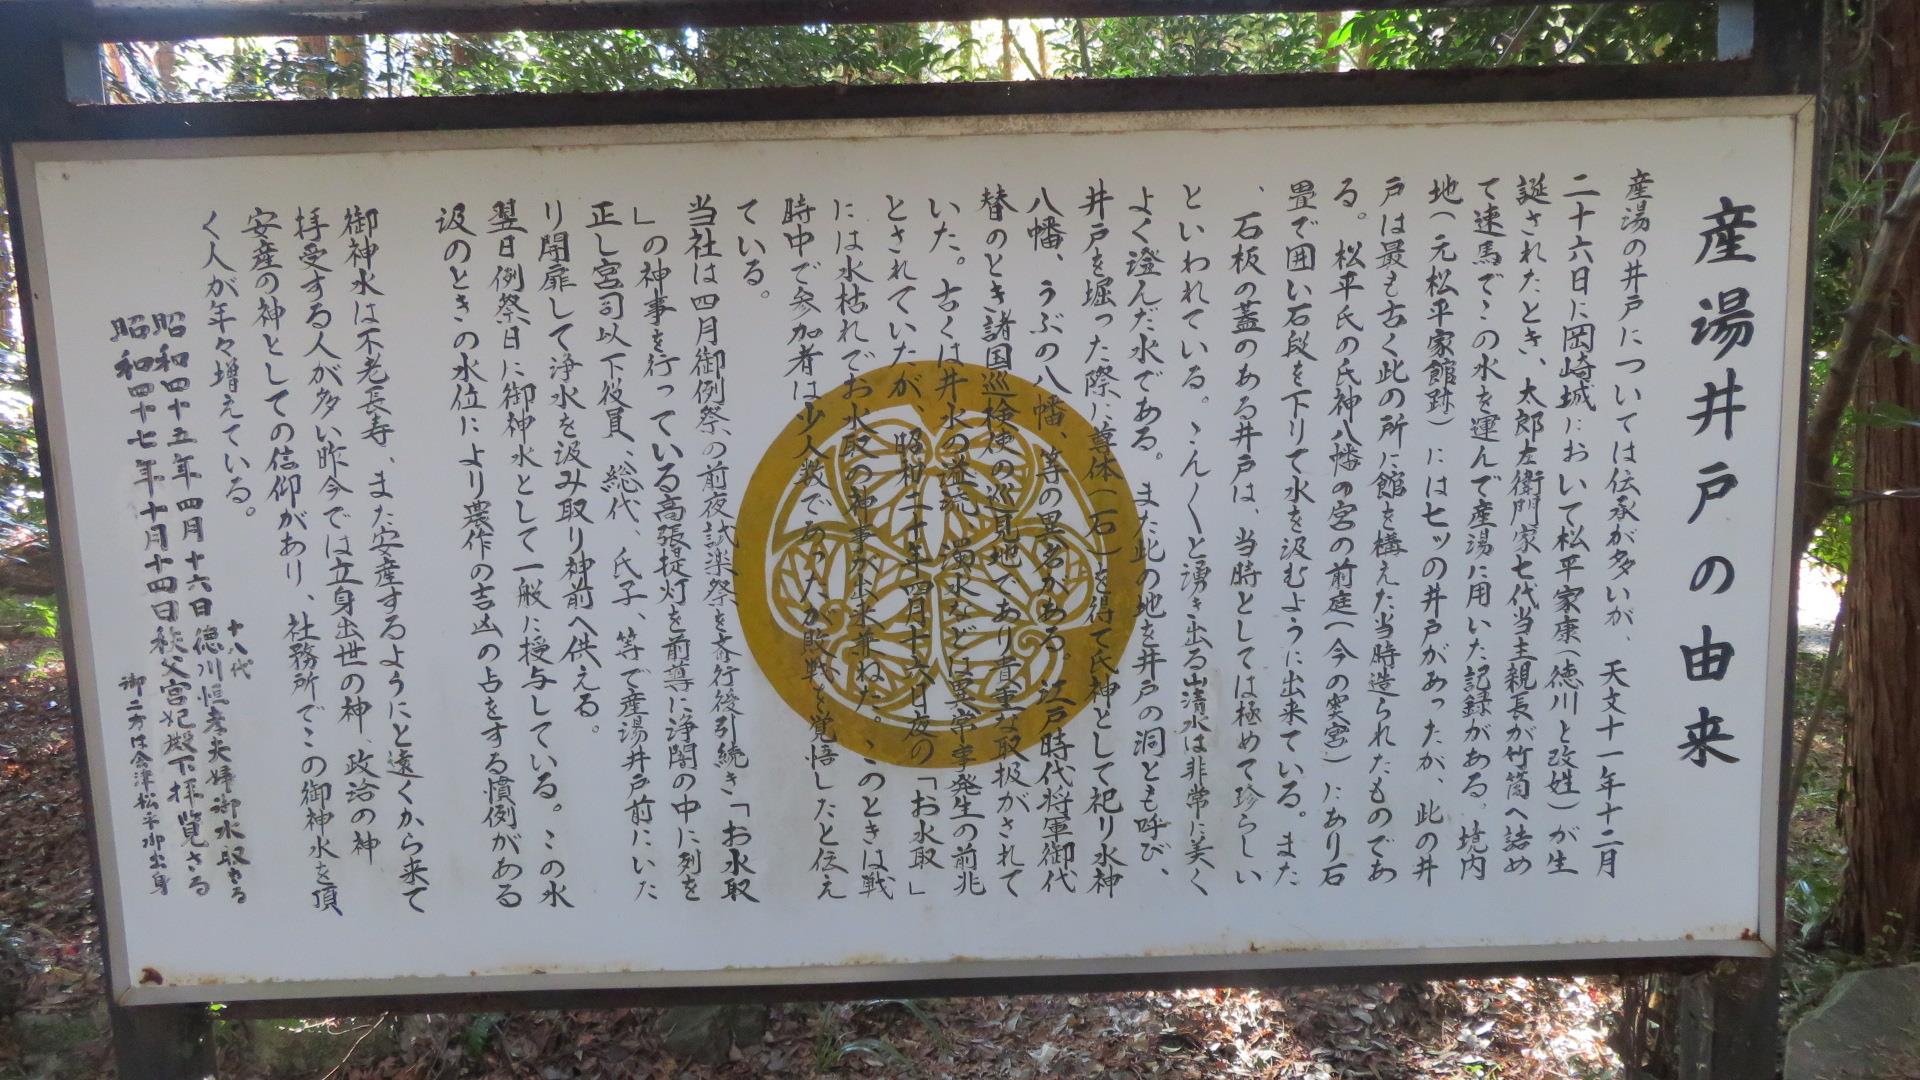 産湯井戸の由来
産湯の井戸については伝承が多いが、天文十一年十二月
二十六日に岡崎城において松平家康(徳川と改姓)が生
誕されたとき、太郎左衛門家七代当主親長が竹筒へ詰め
て速馬でこの水を運んで産湯に用いた記録がある。境内
地(元松平家館跡)には七ッの井戸があったが、此の井
戸は最も古く此の所に館を構えた当時造られたものであ
る。松平氏の氏神八幡の宮の前庭(今の奥宮)にあり石
畳で囲い石段を下りて水を汲むように出来ている。また
、石板の蓋のある井戸は、当時としては極めて珍らしい
といわれている。こんくと湧き出る山清水は非常に美く
よく澄んだ水である。また此の地を井戸の洞とも呼び、
井戸を堀った際に尊体(石)を得て氏神として祀り水神
八幡、うぶの八幡、等の異名がある。江戸時代将軍御代
替のとき諸国巡検使の巡見地であり貴重な取扱がされて
いた。古くは井水の溢流、濁水などは異常事発生の前兆
とされていたが、昭和二十年四月十六日夜の「お水取」
には水枯れでお水取の神事が出来兼ねた。このときは戦
時中で参加者は少人数であったが敗戦を覚悟したと伝え
ている。
当社は四月御例祭の前夜試楽祭を斎行後引続き「お水取
」の神事を行っている高張提灯を前導に浄闇の中に列を
正し宮司以下役員、総代、氏子、等で産湯井戸前にいた
り開扉して浄水を汲み取り神前へ供える。
翌日例祭日に御神水として一般に授与している。この水
汲のときの水位により農作の吉凶の占をする慣例がある
御神水は不老長寿、また安産するようにと遠くから来て
拝受する人が多い昨今では立身出世の神、政治の神
安産の神としての信仰があり、社務所でこの御神水を頂
く人が年々増えている。
十八代
昭和四十五年四月十六日徳川恒孝夫婦御水取さる
昭和四十七年十月十四日秩父宮妃殿下拝覧さる
御二方は会津松平御出身